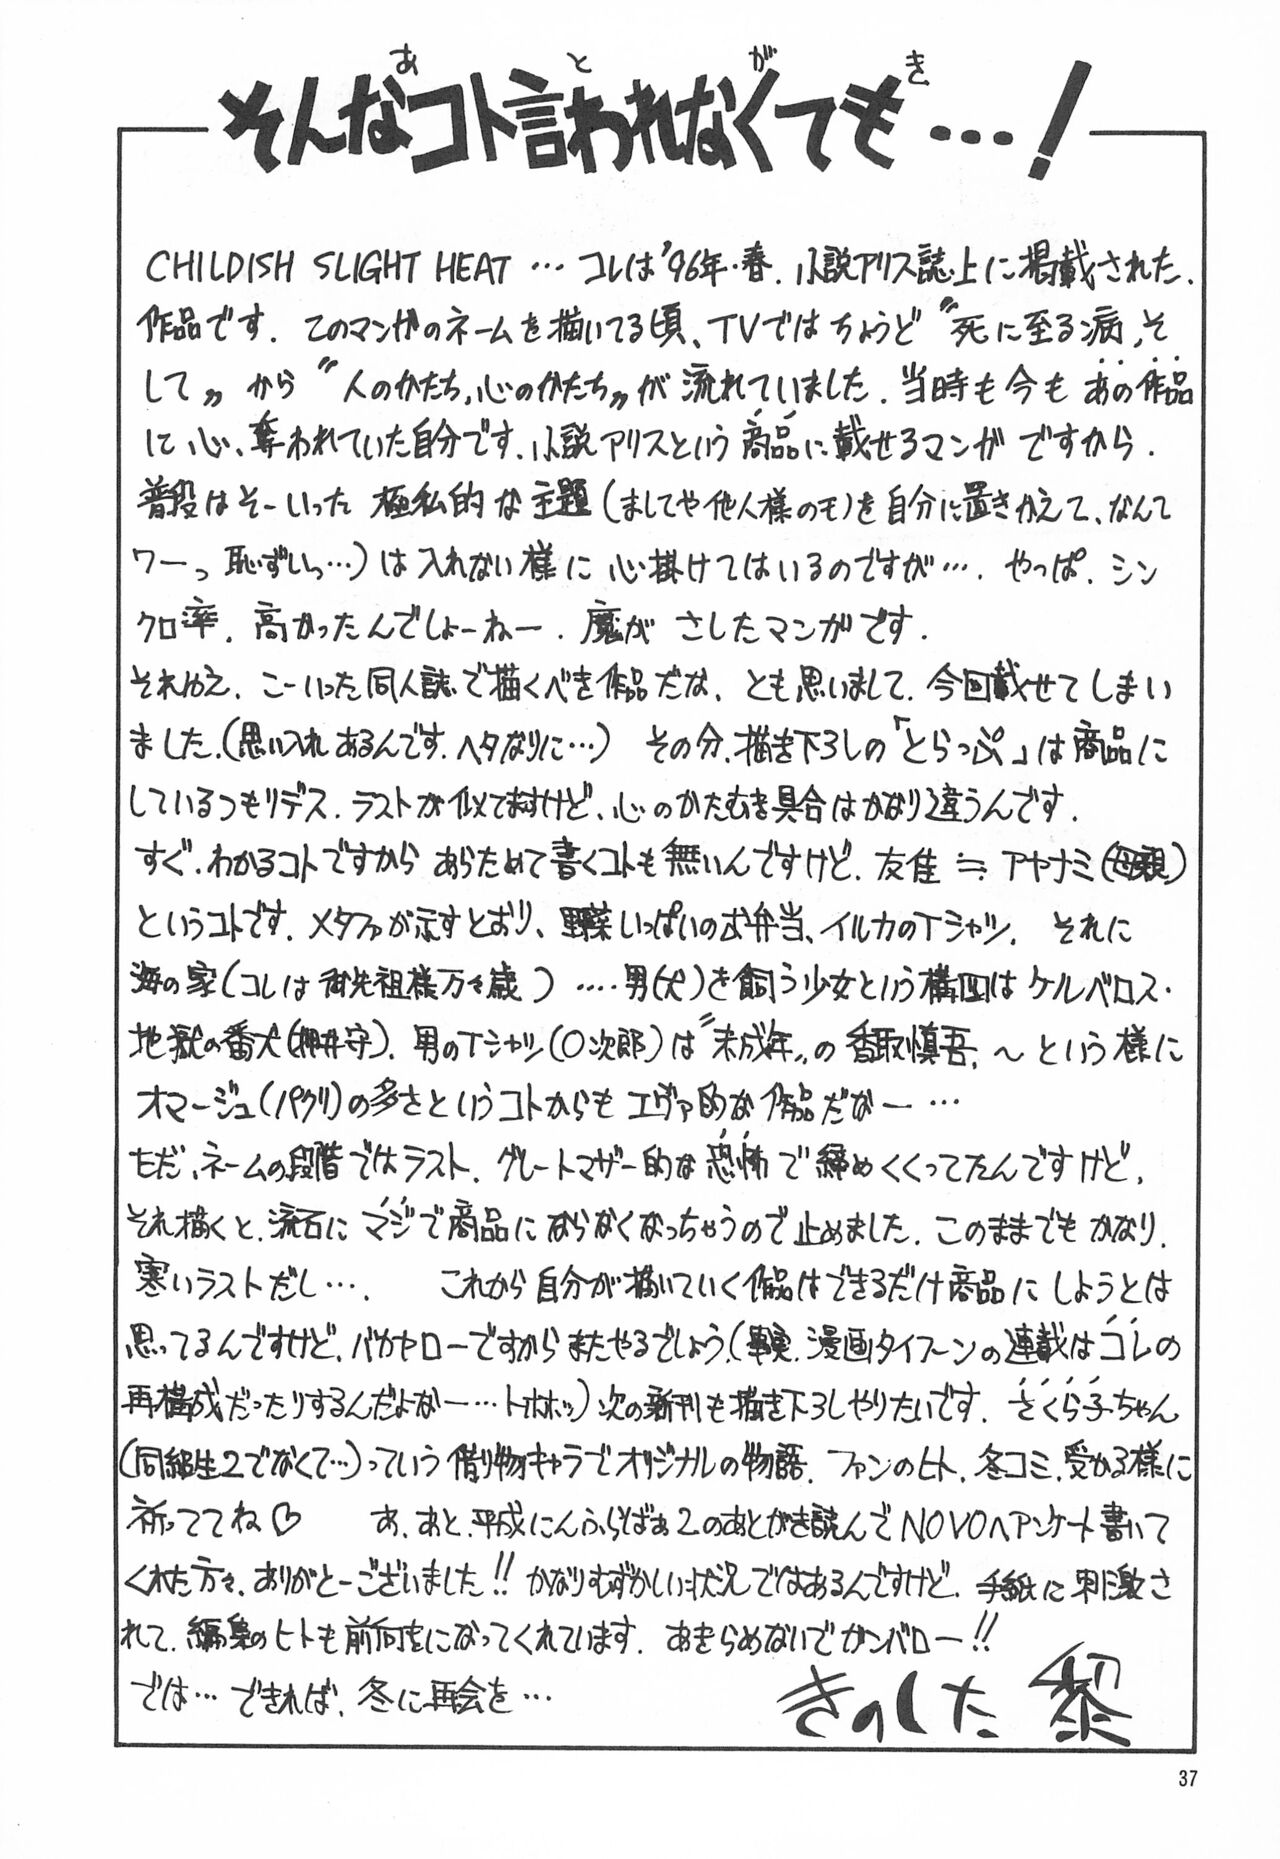 あとがき
そんなコト言われなくても…!
CHILDISH SLIGHT HEAT … コレは'96年・春、小説アリス誌上に掲載された、
作品です。このマンガのネームを描いてる頃、TVではちょうど〝死に至る病、そ
して〟から〝人のかたち、心のかたち〟が流れていました。当時も今もあの作品
に心、奪われていた自分です。小説アリスという商品に載せるマンガですから、
普段はそーいった極私的な主題(ましてや他人様のモノを自分に置きかえて、なんて
ワーっ恥ずいっ…)は入れない様に心掛けてはいるのですが…、やっぱ、シン
クロ率、高かったんでしょーねー。魔がさしたマンガです。
それゆえ、こーいった同人誌で描くべき作品だな、とも思いまして、今回載せてしまい
ました。(思い入れあるんです、ヘタなりに…) その分、描き下ろしの「とらっぷ」は商品に
しているつもりデス。ラストが似てますけど、心のかたむき具合はかなり違うんです。
すぐ、わかるコトですからあらためて書くコトも無いんですけど、友佳≒アヤナミ(母親)
というコトです。メタファが示すとおり、野菜いっぱいのお弁当、イルカのTシャツ、それに
海の家(コレは御先祖様万々歳)……男(犬)を飼う少女という構図はケルベロス・
地獄の番犬(押井守)、男のTシャツ(O次郎)は〝未成年〟の香取慎吾、〜という様に
オマージュ(パクリ)の多さというコトからもエヴァ的な作品だなー…
ただ、ネームの段階ではラスト、グレートマザー的な恐怖で締めくくってたんですけど、
それ描くと、流石にマジで商品にならなくなっちゃうので止めました。このままでもかなり、
寒いラストだし…、 これから自分が描いていく作品はできるだけ商品にしようとは
思ってるんですけど、バカヤローですからまたやるでしょう。(事実、漫画タイフーンの連載はコレの
再構成だったりするんだよなー…トホホッ)次の新刊も描き下ろしやりたいです。さくら子ちゃん
(同級生2でなくて…)っていう借り物キャラでオリジナルの物語、ファンのヒト、冬コミ、受かる様に
祈っててね♡ あ、あと、平成にんふらばぁ2のあとがき読んでNOVOへアンケート書いて
くれた方々、ありがとーございました!! かなりむずかしい状況ではあるんですけど、手紙に刺激さ
れて、編集のヒトも前向きになってくれています。あきらめないでガンバロー!!
では… できれば、冬に再会を…
きのした黎
37